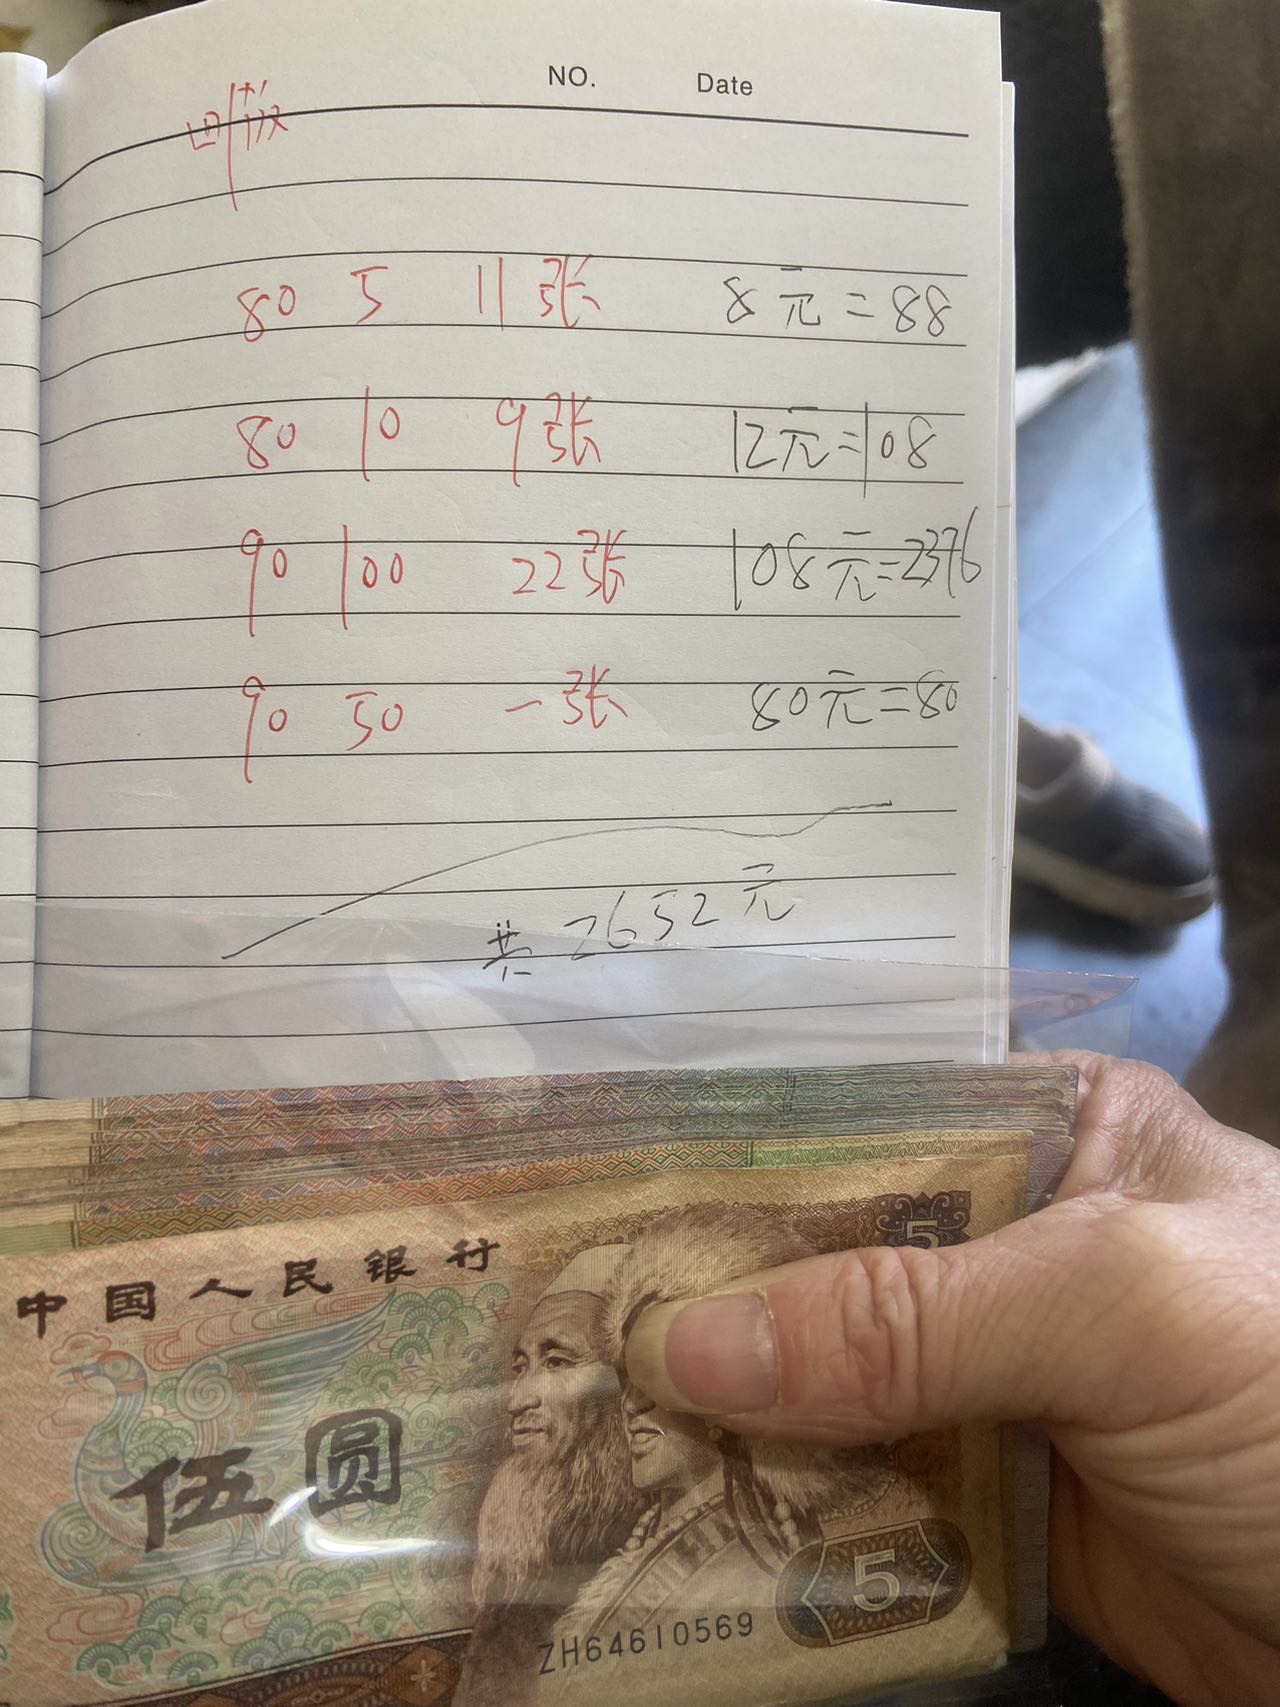 NO. Date
四版
80 5 11张 8元=88
80 10 9张 12元=108
90 100 22张 108元=2376
90 50 一张 80元=80
共 2652元
中国人民银行
5
伍圆
5
ZH64610569